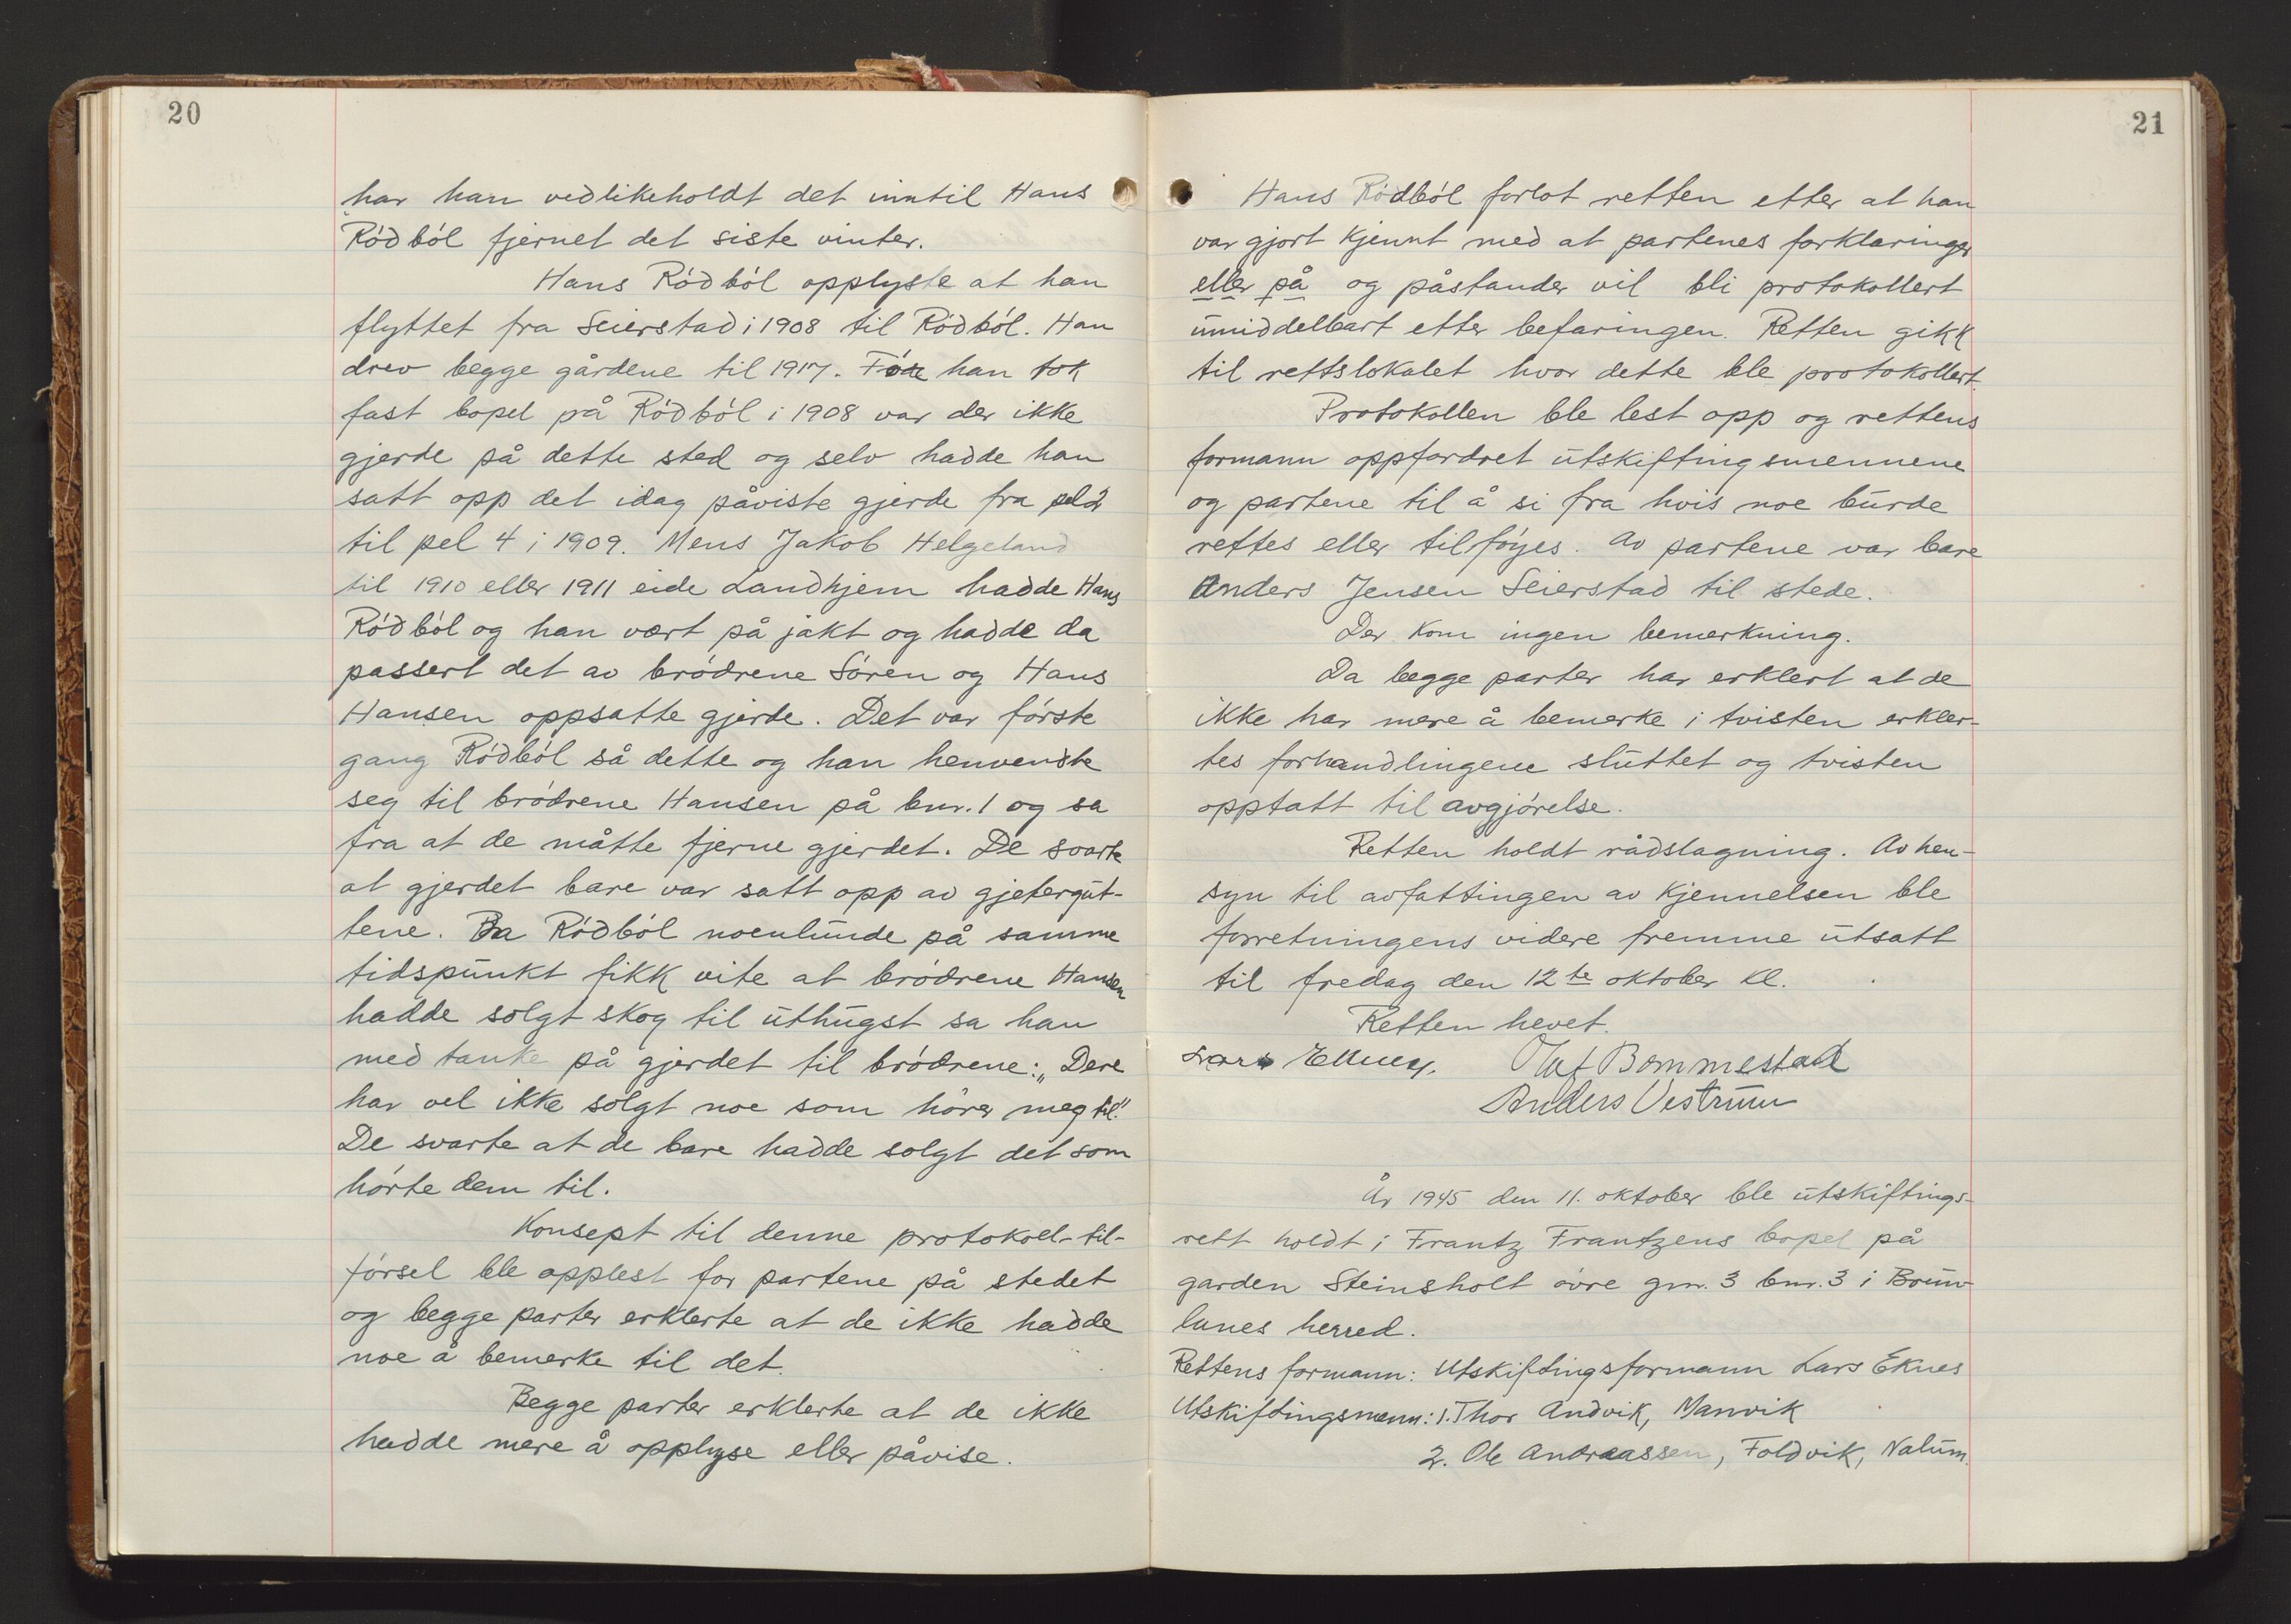 20
har han vedlikeholdt det inntil Hans
Rödból fjernet det siste vinter.
Hans Rödból opplyste at han
flyttet fra Seierstad i 1908 til Rödból. Han
drev begge gårdene til 1917. Före han tok
fast bopel på Rödból i 1908 var der ikke
gjerde på dette sted og selv hadde han
satt opp det idag påviste gjerde fra pel 2
til pel 4 i 1909. Mens Jakob Helgeland
til 1910 eller 1911 eide Landhjem hadde Hans
Rödból og han vært på jakt og hadde da
passert det av brödrene Sören og Hans
Hansen oppsatte gjerde. Det var förste
gang Rödból så dette og han henvendte
seg til brödrene Hansen på bnr. 1 og sa
fra at de måtte fjerne gjerdet. De svarte
at gjerdet bare var satt opp av gjetergut-
tene. Da Rödból noenlunde på samme
tidspunkt fikk vite at brödrene Hansen
hadde solgt skog til uthugst sa han
med tanke på gjerdet til brödrene: „Dere
har vel ikke solgt noe som hörer meg til."
De svarte at de bare hadde solgt det som
hörte dem til.
Konsept til denne protokoll-til-
försel ble opplest for partene på stedet
og begge parter erklerte at de ikke hadde
noe å bemerke til det.
Begge parter erklerte at de ikke
hadde mere å opplyse eller påvise.
21
Hans Rödból forlot retten etter at han
var gjort kjennt med at partenes forklaringer
eller på og påstander vil bli protokollert
umiddelbart etter befaringen. Retten gikk
til rettslokalet hvor dette ble protokollert.
Protokollen ble lest opp og rettens
formann oppfordret utskiftingsmennene
og partene til å si fra hvis noe burde
rettes eller tilföyes. Av partene var bare
Anders Jensen Seierstad til stede.
Der kom ingen bemerkning.
Da begge parter har erklert at de
ikke har mere å bemerke i tvisten erkler-
tes forhandlingene sluttet og tvisten
opptatt til avgjörelse.
Retten holdt rådslagning. Av hen-
syn til avfattingen av kjennelsen ble
forretningens videre fremme utsatt
til fredag den 12te oktober kl.
Retten hevet.
Lars Eknes. Olaf Bommestad
Anders Vestrum
År 1945 den 11. oktober ble utskiftings-
rett holdt i Frantz Frantzens bopel på
garden Steinsholt övre gnr. 3 bnr. 3 i Brun-
lanes herred.
Rettens formann: Utskiftingsformann Lars Eknes
Utskiftingsmenn: 1. Thor Andvik, Manvik
2. Ole Andraassen, Foldvik, Nalum.